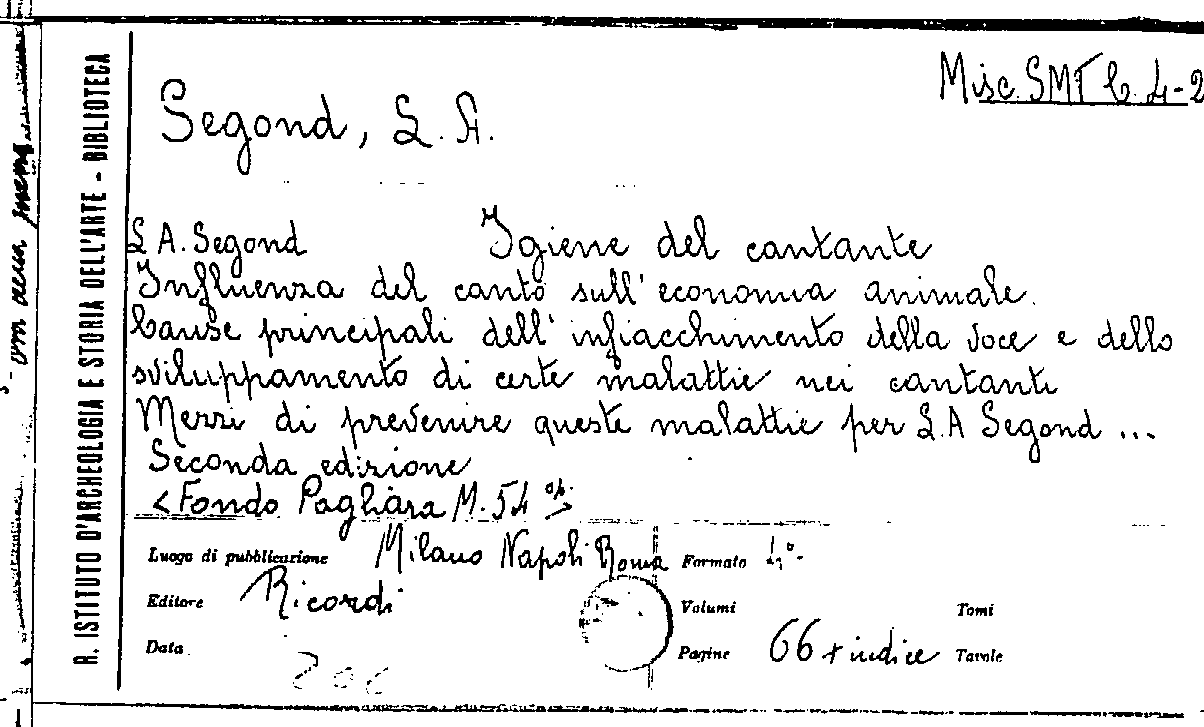 Misc. SMT C. 4-2
Segond, L. A.
L A. Segond Igiene del cantante
Influenza del canto sull'economia animale.
Cause principali dell'infiacchimento della voce e dello
sviluppamento di certe malattie nei cantanti
Mezzi di prevenire queste malattie per L. A Segond ...
Seconda edizione
<Fondo Pagliara M. 54
Luogo di pubblicazione Milano Napoli Roma Formato 4°.
Editore Ricordi Volumi Tomi
Data Pagine 66 + indice Tavole
R. ISTITUTO D'ARCHEOLOGIA E STORIA DELL'ARTE - BIBLIOTECA